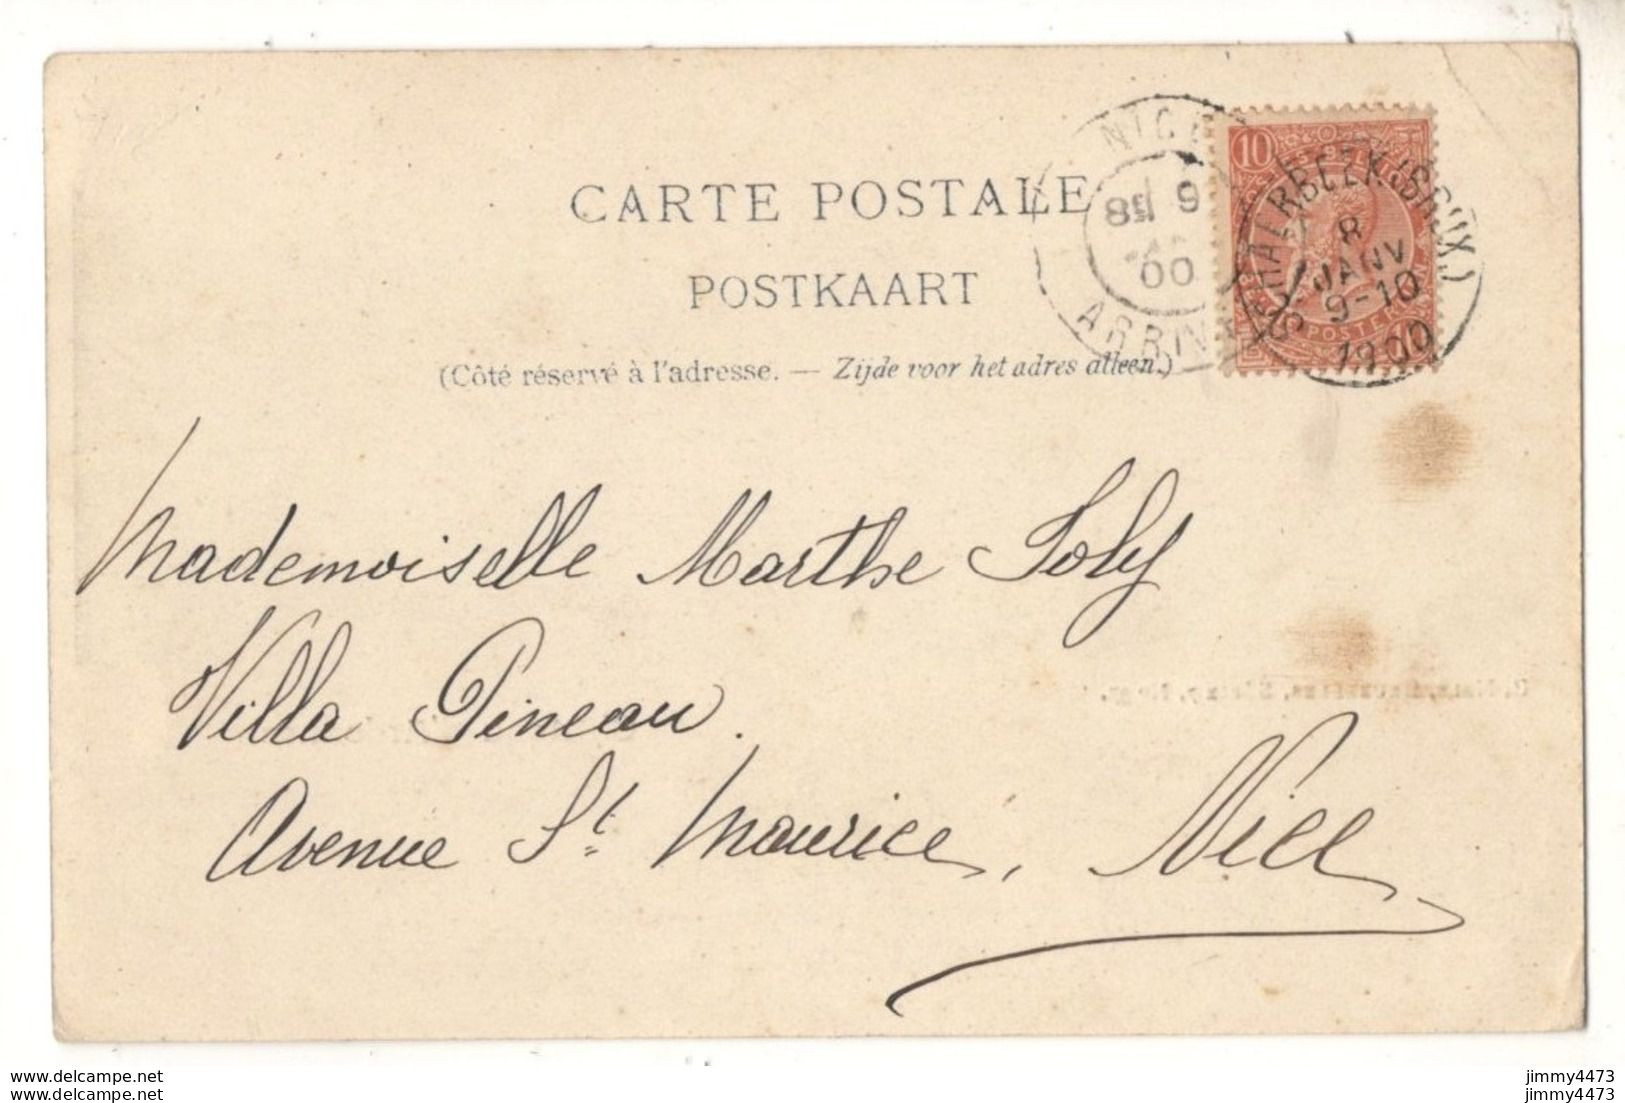 CARTE POSTALE
POSTKAART
(Côté réservé à l'adresse. — Zijde voor het adres alleen.)
NICE
ARRIV
00
10
SCHAERBEEK (BRUX.)
8
JANV
9-10
1900
10
Mademoiselle Marthe Joly
Villa Pineau.
Avenue St Maurice, Nice
www.delcampe.net
www.delcampe.net
jimmy4473
jimmy4473